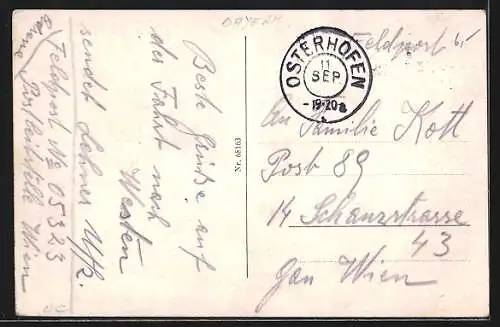 BAYERN
Feldpost
OSTERHOFEN
11
SEP
-19-20
An Familie Kott
Post 89
14 Schanzstrasse
43
Gau Wien
Nr. 68163
Beste Grüße auf
der Fahrt nach
Westen
sendet Lehner Uffz.
Feldpost No 05323
Postleitstelle Wien